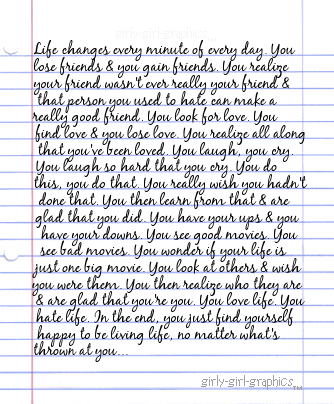 girly-girl-graphics...
Life changes every minute of every day. You
lose friends & you gain friends. You realize
your friend wasn't ever really your friend &
that person you used to hate can make a
really good friend. You look for love. You
find love & you lose love. You realize all along
that you've been loved. You laugh, you cry.
You laugh so hard that you cry. You do
this, you do that. You really wish you hadn't
done that. You then learn from that & are
glad that you did. You have your ups & you
have your downs. You see good movies. You
see bad movies. You wonder if your life is
just one big movie. You look at others & wish
you were them. You then realize who they are
& are glad that you're you. You love life. You
hate life. In the end, you just find yourself
happy to be living life, no matter what's
thrown at you...
girly-girl-graphics™